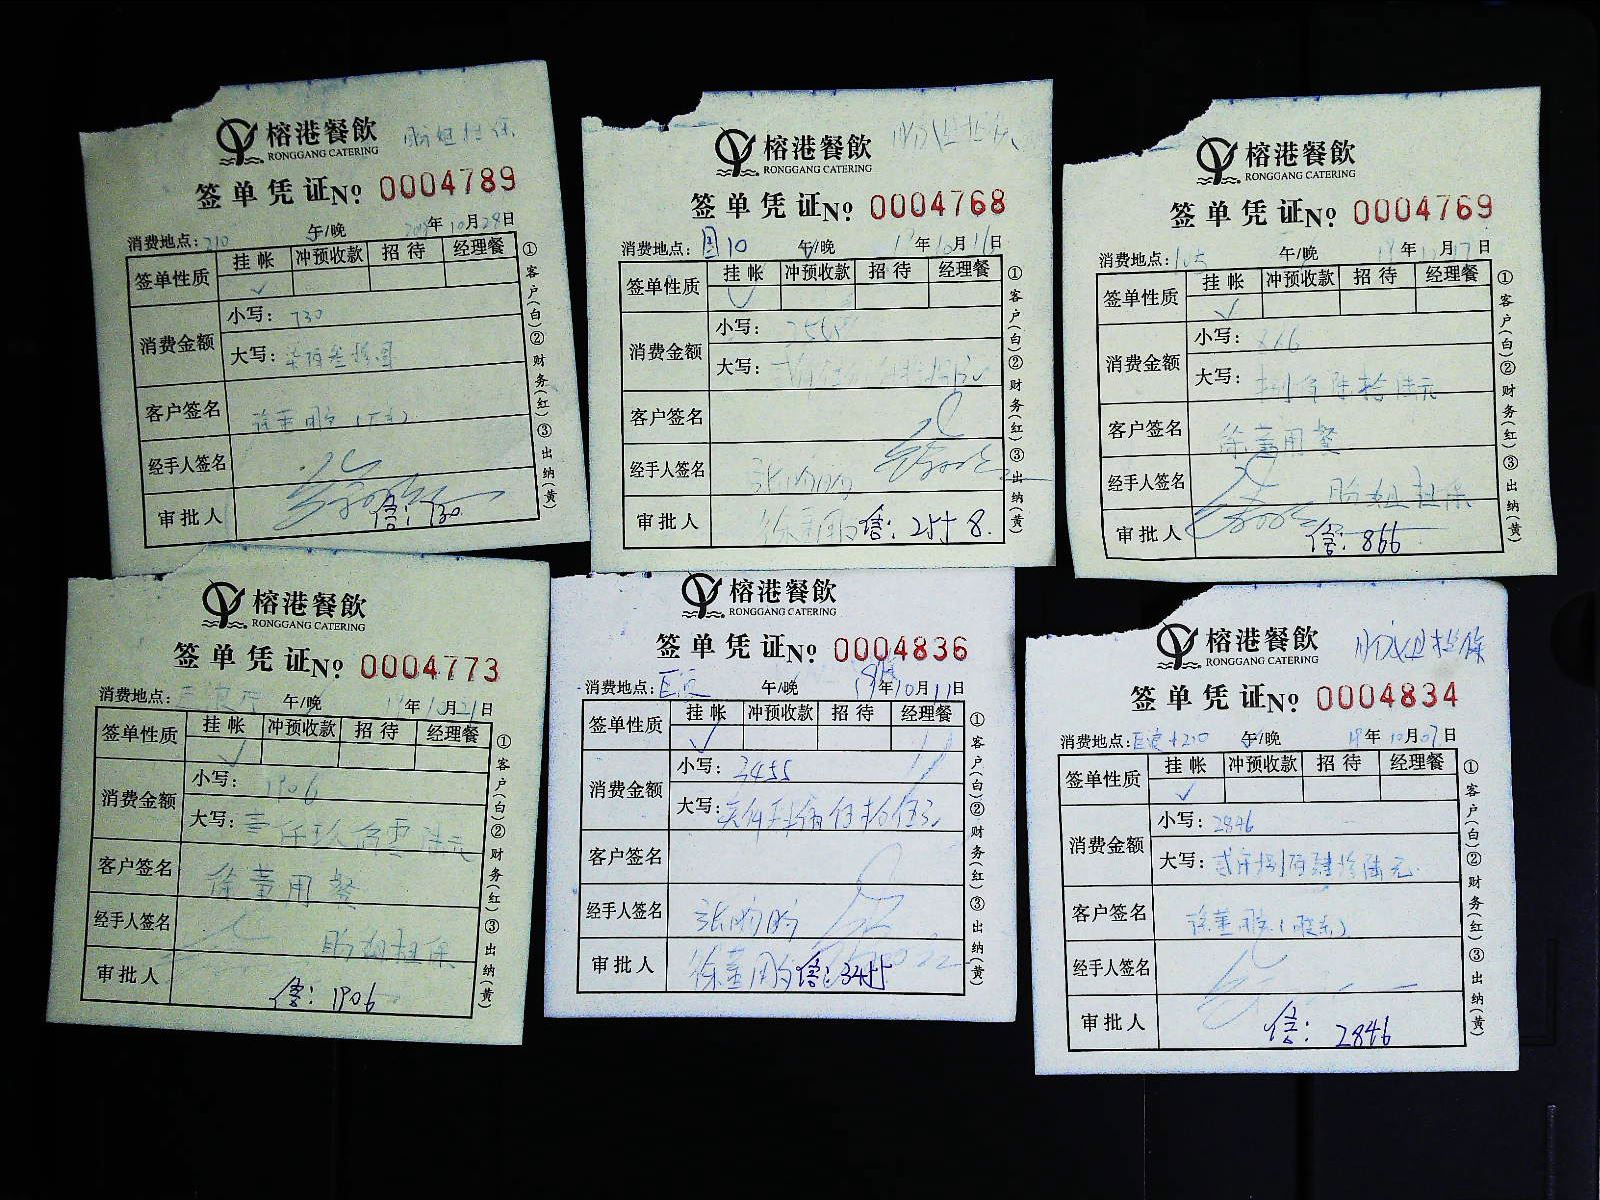 榕港餐飲
RONGGANG CATERING
盼姐担保
签单凭证 № 0004789
消费地点: 210 午/晚 年10月28日
签单性质 挂帐 冲预收款 招待 经理餐
✓
消费金额 小写: 730
大写: 柒佰叁拾圆
客户签名 徐董
经手人签名
审批人 信: 730
①客户(白)②财务(红)③出纳(黄)
榕港餐飲
RONGGANG CATERING
签单凭证 № 0004768
消费地点: 国10 午/晚 19年10月11日
签单性质 挂帐 冲预收款 招待 经理餐
✓
消费金额 小写: 2558
大写:
客户签名
经手人签名 张盼盼
审批人 徐董用 信: 2558.
①客户(白)②财务(红)③出纳(黄)
榕港餐飲
RONGGANG CATERING
签单凭证 № 0004769
消费地点: 午/晚 19年10月17日
签单性质 挂帐 冲预收款 招待 经理餐
✓
消费金额 小写: 866
大写: 捌佰陆拾陆元
客户签名 徐董用餐
经手人签名 盼姐担保
审批人 信: 866
①客户(白)②财务(红)③出纳(黄)
榕港餐飲
RONGGANG CATERING
签单凭证 № 0004773
消费地点: 午/晚 19年10月21日
签单性质 挂帐 冲预收款 招待 经理餐
✓
消费金额 小写: 1906
大写: 壹仟玖佰零陆元
客户签名 徐董用餐
经手人签名 盼姐担保
审批人 信: 1906
①客户(白)②财务(红)③出纳(黄)
榕港餐飲
RONGGANG CATERING
签单凭证 № 0004836
消费地点: 巨淀 午/晚 19年10月11日
签单性质 挂帐 冲预收款 招待 经理餐
✓
消费金额 小写: 3455
大写: 叁仟肆佰伍拾伍元
客户签名
经手人签名 张盼盼
审批人 徐董用 信: 3455
①客户(白)②财务(红)③出纳(黄)
榕港餐飲
RONGGANG CATERING
盼姐担保
签单凭证 № 0004834
消费地点: 巨淀+210 午/晚 19年10月07日
签单性质 挂帐 冲预收款 招待 经理餐
✓
消费金额 小写: 2846
大写: 贰仟捌佰肆拾陆元
客户签名 徐董
经手人签名
审批人 信: 2846
①客户(白)②财务(红)③出纳(黄)